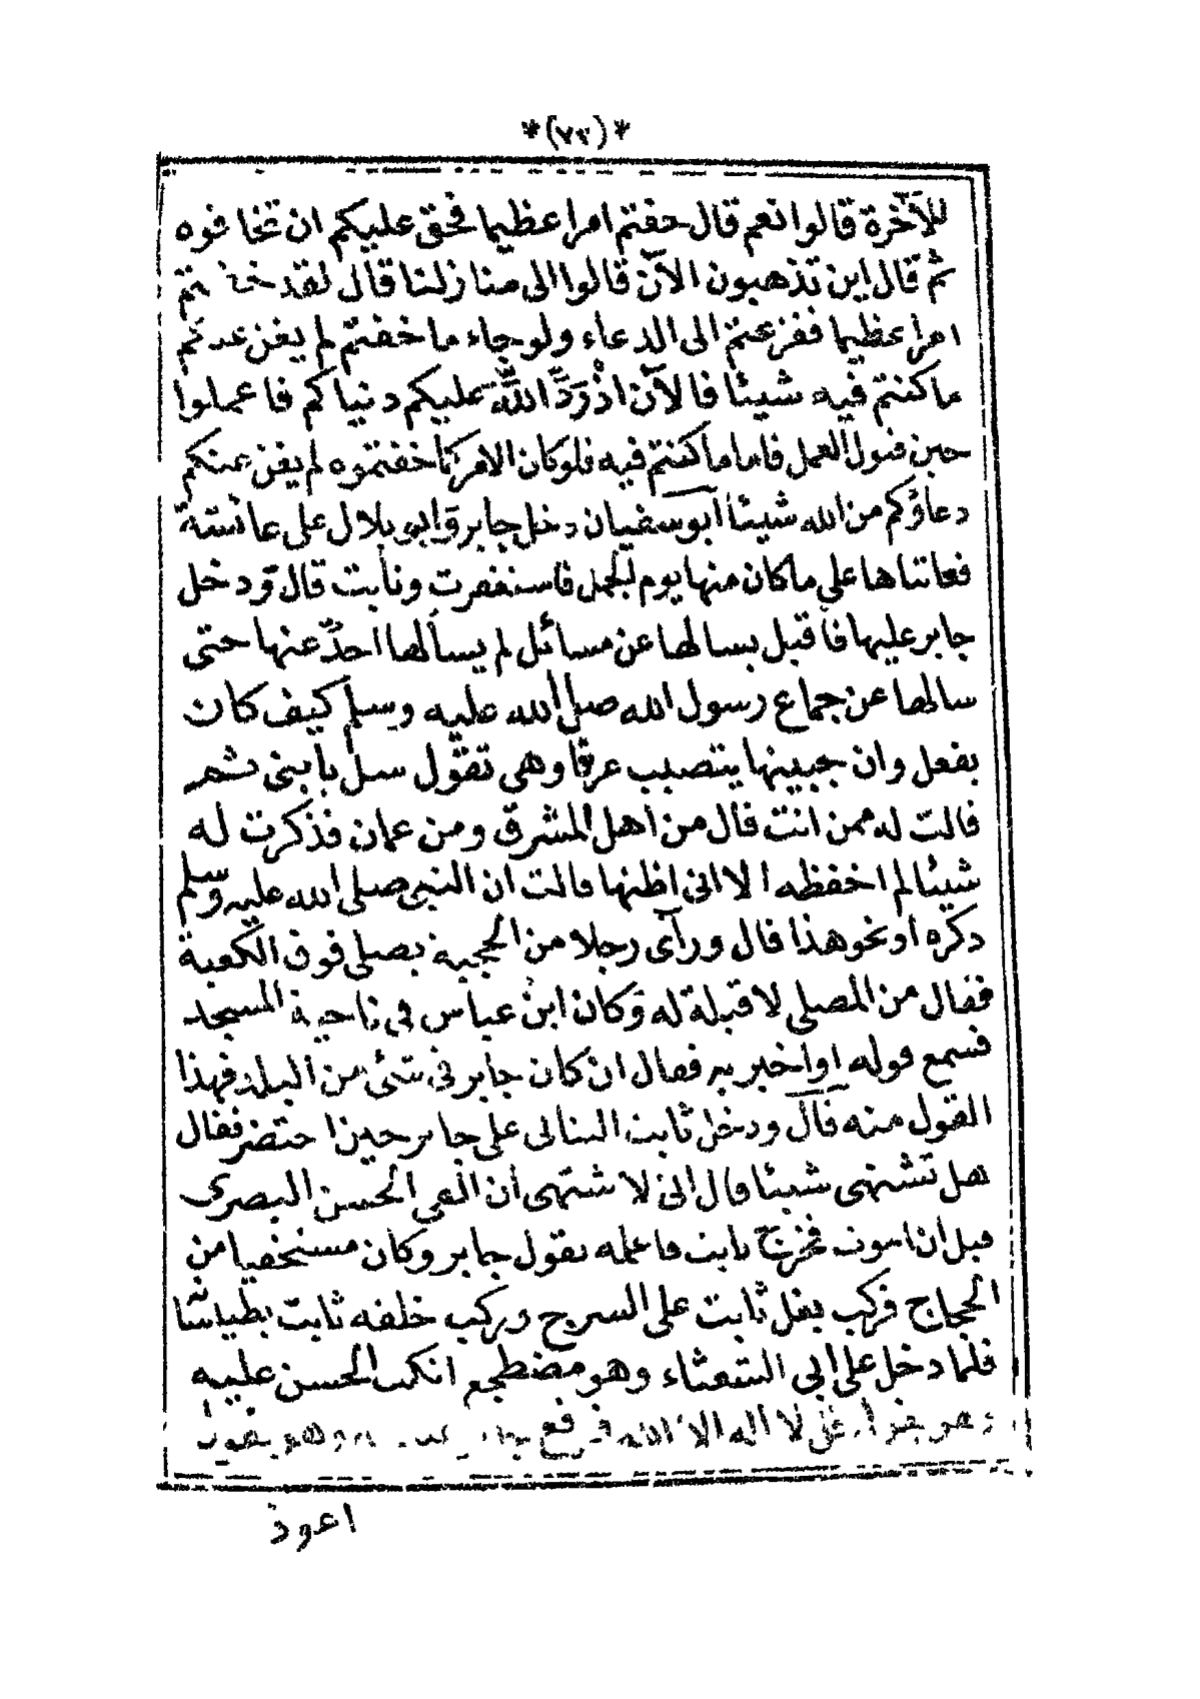 *(٧٣)*
للآخرة قالوا نعم قال خفتم امرا عظيما فحق عليكم ان تخافوه
ثم قال اين تذهبون الآن قالوا الى منازلنا قال لقد خفتم
امرا عظيما ففزعتم الى الدعاء ولو جاء ما خفتم لم يغن عنكم
ما كنتم فيه شيئا فالآن اذْ رَدَّ اللَّه عليكم دنياكم فاعملوا
حين قبول العمل فاما ما كنتم فيه فلو كان الامر كما خفتموه لم يغن عنكم
دعاؤكم من الله شيئا ابو سفيان دخل جابر وابو بلال على عائشة
فعاتباها على ما كان منها يوم الجمل فاستغفرت وتابت قال ودخل
جابر عليها فاقبل يسالها عن مسائل لم يسالها احدٌ عنها حتى
سالها عن جماع رسول الله صلى الله عليه وسلم كيف كان
يفعل وان جبينها يتصبب عرقا وهى تقول سل يا بنى ثم
قالت له ممن انت قال من اهل المشرق ومن عمان فذكرت له
شيئا لم احفظه الا انى اظنها قالت ان النبى صلى الله عليه وسلم
ذكره او نحو هذا قال ورآى رجلا من الحجبة يصلى فوق الكعبة
فقال من المصلى لا قبلة له وكان ابن عباس فى ناحية المسجد
فسمع قوله او اخبر به فقال ان كان جابر فى شئ من البلد فهذا
القول منه قال ودخل ثابت البنانى على جابر حين احتضر فقال
هل تشتهى شيئا قال انى لا شتهى ان القى الحسن البصرى
قبل ان اموت فخرج ثابت فاعلمه بقول جابر وكان مستخفيا من
الحجاج فركب بغل ثابت على السرج وركب خلفه ثابت بطيلسانا
فلما دخل على ابى الشعثاء وهو مضطجع انكب الحسن عليه
وهو يقول قل لا اله الا الله فرفع جابر وهو يقول
اعوذ